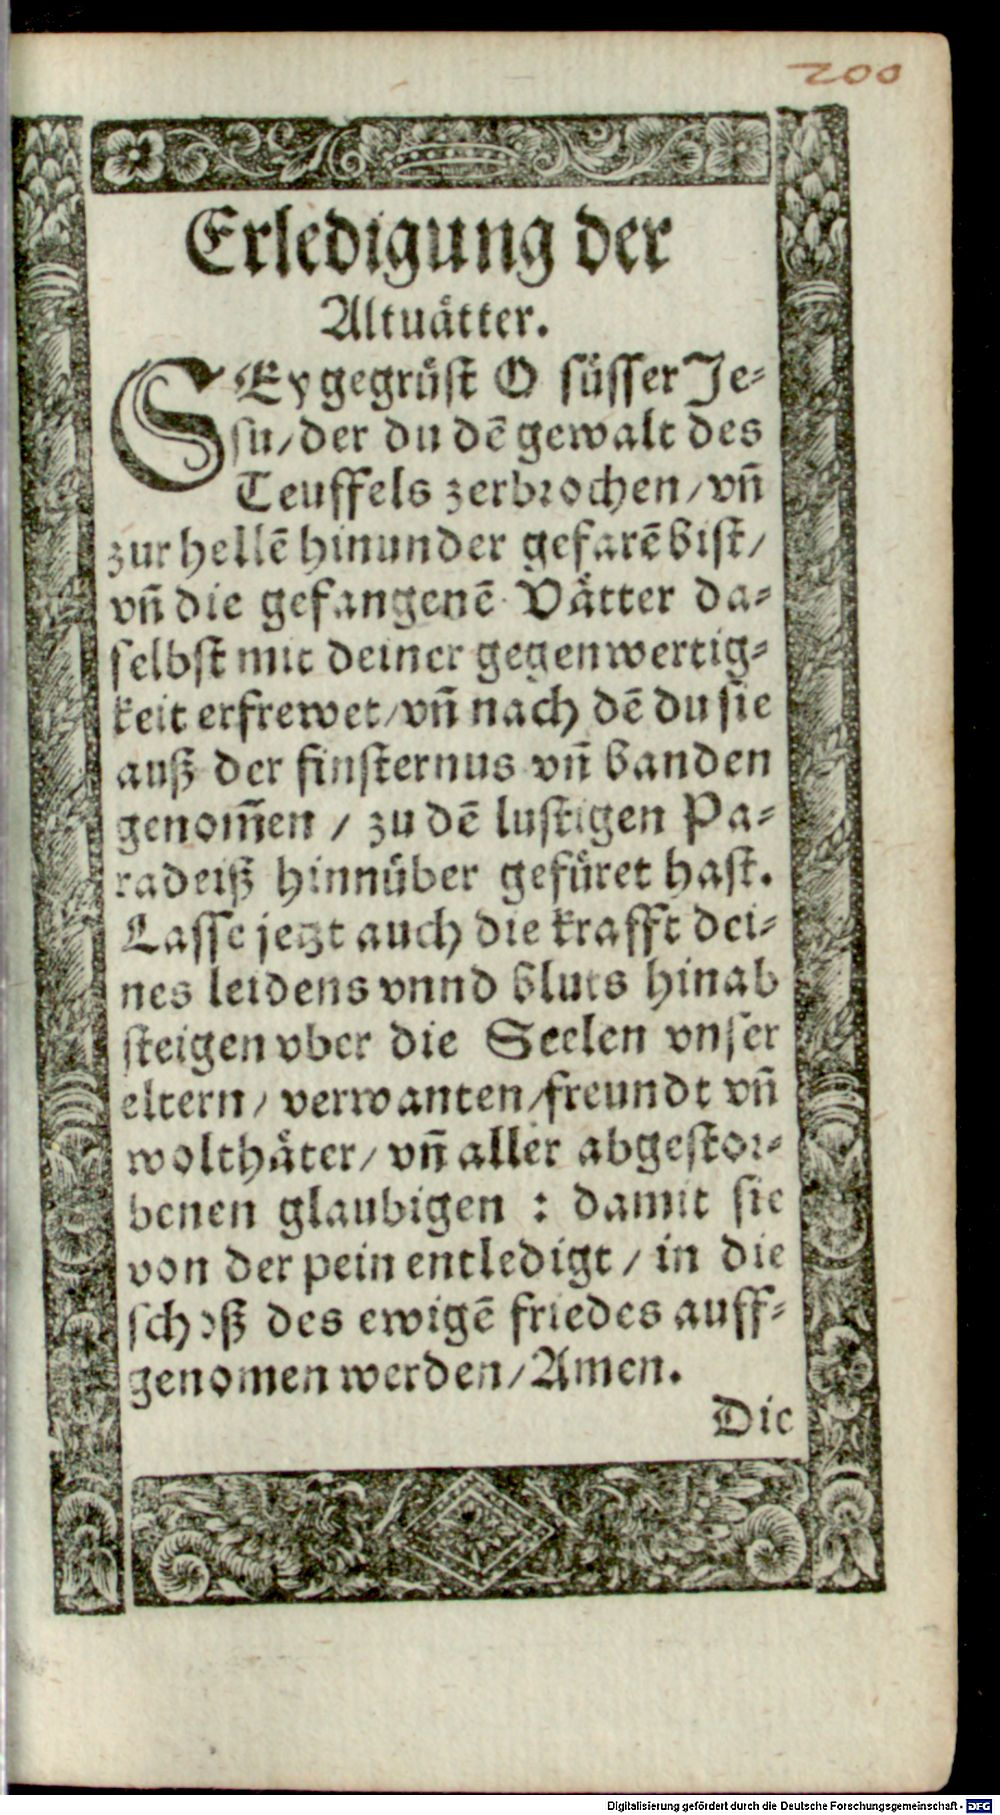 200
Erledigung der
Altuaͤtter.
SEy gegruͤſt O ſuͤſſer Je⸗
ſu/ der du dē gewalt des
Teuffels zerbrochen/ vn̄
zur hellē hinunder gefarē biſt/
vn̄ die gefangenē Vaͤtter da⸗
ſelbſt mit deiner gegenwertig⸗
keit erfrewet/ vn̄ nach dē du ſie
auß der finſternus vn̄ banden
genom̄en / zu dē luſtigen Pa⸗
radeiß hinnuͤber gefuͤret haſt.
Laſſe jetzt auch die krafft dei⸗
nes leidens vnnd bluts hinab
ſteigen vber die Seelen vnſer
eltern/ verwanten/ freundt vn̄
wolthaͤter/ vn̄ aller abgeſtor⸗
benen glaubigen : damit ſie
von der pein entledigt/ in die
ſchoß des ewigē friedes auff⸗
genomen werden/ Amen.
Die
Digitalisierung gefördert durch die Deutsche Forschungsgemeinschaft - DFG